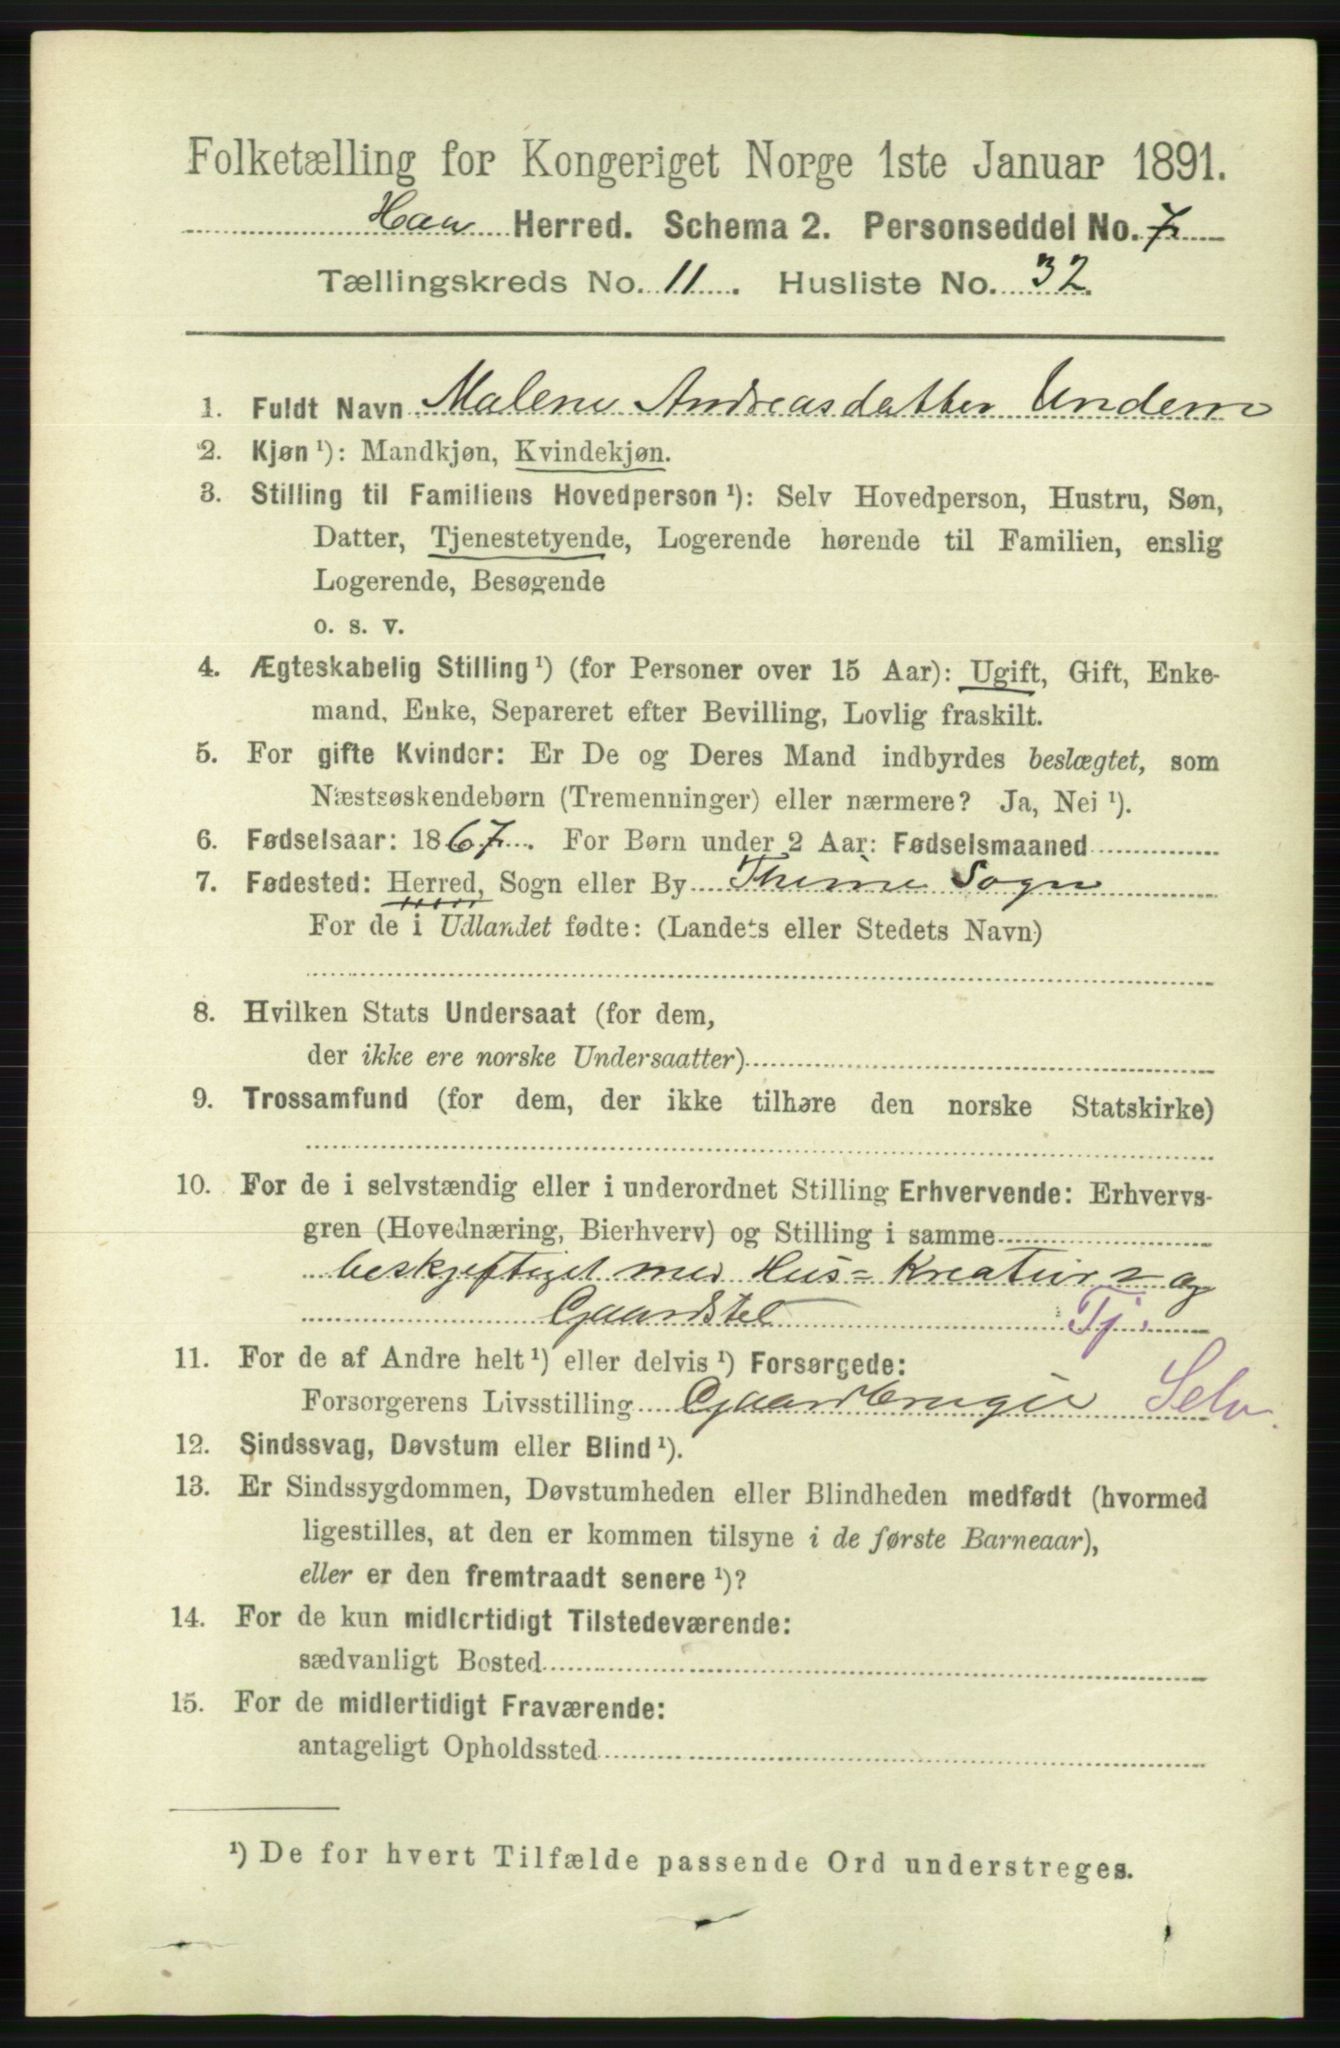 Folketælling for Kongeriget Norge 1ste Januar 1891.
Haa Herred. Schema 2. Personseddel No. 7
Tællingskreds No. 11. Husliste No. 32.
1. Fuldt Navn Malene Andreasdatter Undem
2. Kjøn ¹): Mandkjøn, Kvindekjøn.
3. Stilling til Familiens Hovedperson ¹): Selv Hovedperson, Hustru, Søn,
Datter, Tjenestetyende, Logerende hørende til Familien, enslig
Logerende, Besøgende
o. s. v.
4. Ægteskabelig Stilling ¹) (for Personer over 15 Aar): Ugift, Gift, Enke-
mand, Enke, Separeret efter Bevilling, Lovlig fraskilt.
5. For gifte Kvinder: Er De og Deres Mand indbyrdes beslægtet, som
Næstsøskendebørn (Tremenninger) eller nærmere? Ja, Nei ¹).
6. Fødselsaar: 1867. For Børn under 2 Aar: Fødselsmaaned
7. Fødested: Herred, Sogn eller By Thime Sogn
For de i Udlandet fødte: (Landets eller Stedets Navn)
8. Hvilken Stats Undersaat (for dem,
der ikke ere norske Undersaatter)
9. Trossamfund (for dem, der ikke tilhøre den norske Statskirke)
10. For de i selvstændig eller i underordnet Stilling Erhvervende: Erhvervs-
gren (Hovednæring, Bierhverv) og Stilling i samme
beskjeftiget med Hus- Kreatur og
Gaardstel Tj.
11. For de af Andre helt ¹) eller delvis ¹) Forsørgede:
Forsørgerens Livsstilling Gaardbruger Selv.
12. Sindssvag, Døvstum eller Blind ¹).
13. Er Sindssygdommen, Døvstumheden eller Blindheden medfødt (hvormed
ligestilles, at den er kommen tilsyne i de første Barneaar),
eller er den fremtraadt senere ¹)?
14. For de kun midlertidigt Tilstedeværende:
sædvanligt Bosted
15. For de midlertidigt Fraværende:
antageligt Opholdssted
¹) De for hvert Tilfælde passende Ord understreges.